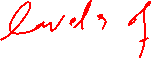 levels of